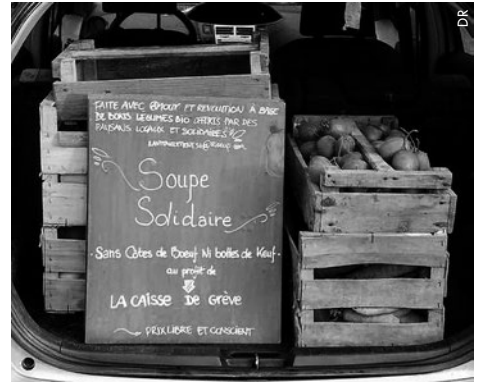 FAITE AVEC AMOUR ET REVOLUTION À BASE
DE BONS LEGUMES BIO OFFERTS PAR DES
PAYSANS LOCAUX ET SOLIDAIRES
Soupe
Solidaire
Sans Côtes de Boeuf Ni bottes de Keuf
au profit de
LA CAISSE DE Grève
PRIX LIBRE ET CONSCIENT
DR